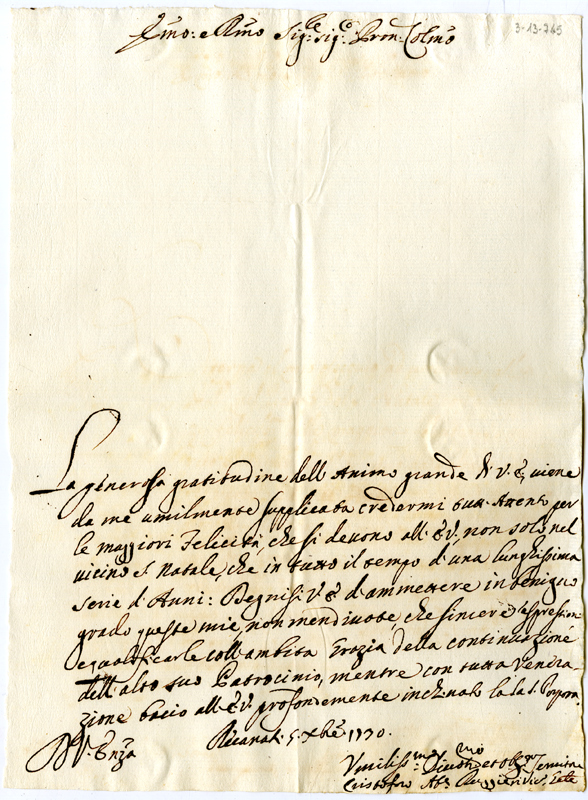 3-13-765
Emo: e Rmo Sig:re Sig: Pron: Colmo
La generosa gratitudine dell Animo grande di V. E., viene
da me umilmente supplicata credermi tutt Attento per
le maggiori Felicità, che si devono all' E. V., non solo nel
vicino S. Natale, che in tutto il tempo d'una lunghissima
serie d'Anni: Degnisi V. E. d'ammettere in benigno
grado queste mie, non men divote, che sincere espressioni
e qualificarle coll ambita Grazia della continuazione
dell'alto suo Patrocinio, mentre con tutta venera
zione bacio all' E. V. profondamente inchinato la Sa. Porpora.
Di V. Enza Recanati 5. Xbre 1730.
Umiliss:mo Devotmo et Obl:mo Servitore
Cristoforo Ab. Ruggieri